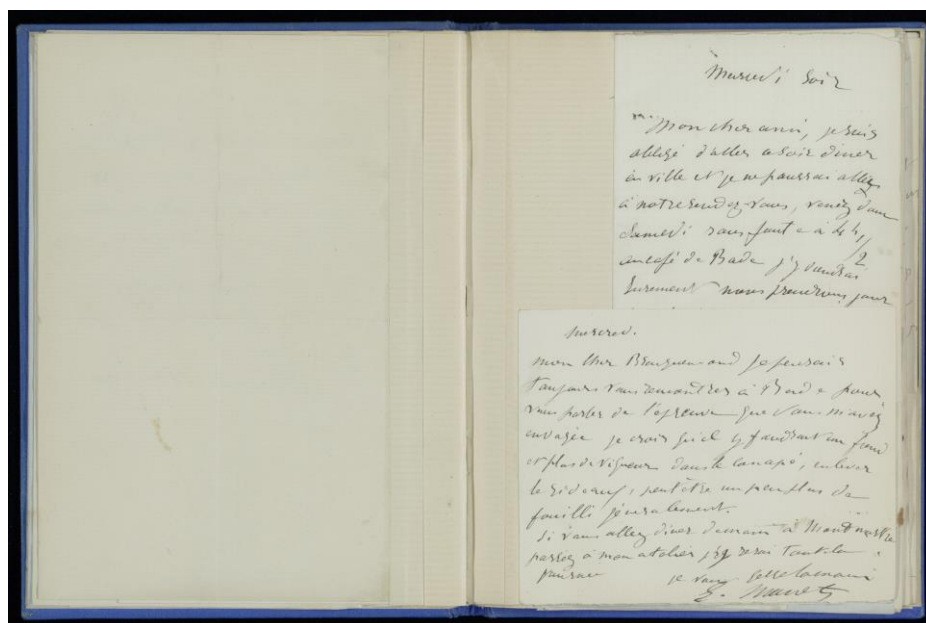 Mercredi soir
Mon cher ami, je suis
obligé d'aller ce soir diner
en ville et je ne pourrai aller
à notre rendez-vous, venez donc
Samedi sans faute à 4 h 1/2
au café de Bade j'y viendrai
surement nous prendrons jour
mercred.
mon cher Bracquemond je pensais
toujours vous rencontrer à Bade pour
vous parler de l'épreuve que vous m'avez
envoyée je crois qu'il y faudrait un fond
et plus de vigueur dans le canapé, enlever
le rideau, peut être un peu plus de
fouilli généralement.
Si vous allez diner demain à Montmartre
passez à mon atelier j'y serai toute la
journée
je vous serre la main
E. Manet